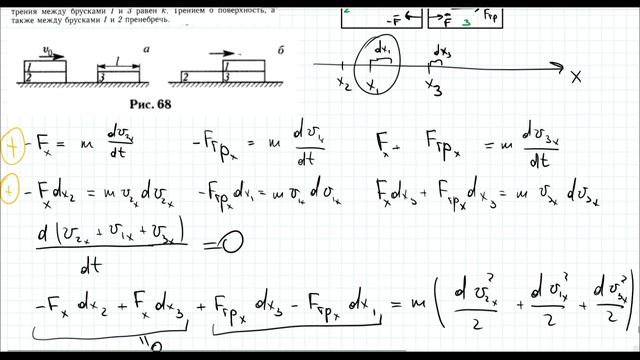 трения между брусками 1 и 3 равен к. Трением о поверхность, а
также между брусками 1 и 2 пренебречь.
2 -F F 3 Fтр
v₀ а б
1 l 1
2 3 2 3
Рис. 68
dx₁ dx₃
x₂ x₁ x₃ X
+ -Fₓ = m dv₂ₓ/dt -Fтрₓ = m dv₁ₓ/dt Fₓ + Fтрₓ = m dv₃ₓ/dt
+ -Fₓdx₂ = m v₂ₓdv₂ₓ -Fтрₓdx₁ = m v₁ₓ dv₁ₓ Fₓdx₃ + Fтрₓdx₃ = m v₃ₓ dv₃ₓ
d(v₂ₓ + v₁ₓ + v₃ₓ)/dt = 0
-Fₓ dx₂ + Fₓ dx₃ + Fтрₓ dx₃ - Fтрₓ dx₁ = m (dv₂ₓ²/2 + dv₁ₓ²/2 + dv₃ₓ²/2)
"0